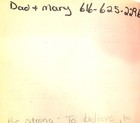 Dad + Mary 616-625-2296
Be strong - To believe, to